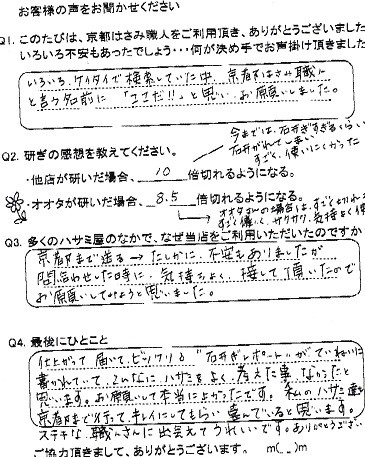 お客様の声をお聞かせください
Q1. このたびは、京都はさみ職人をご利用頂き、ありがとうございました
いろいろ不安もあったでしょう・・・何が決め手でお声掛け頂きました
いろいろ、ケイタイで検索していた中、京都はさみ職人
と言う名前に「ココだ!!」と思い、お願いしました。
Q2. 研ぎの感想を教えてください。
今までは、石井ぎすぎるくらい
すごく使いにくかった
・他店が研いだ場合、10 倍切れるようになる。
・オオタが研いだ場合、8.5 倍切れるようになる。
オオタさんの場合は、すごく切れる
すごく軽く、サクサク、気持よく使
Q3. 多くのハサミ屋のなかで、なぜ当店をご利用いただいたのですか
京都まで送る→たしかに、不安もありましたが
問合わせした時に、気持ちよく、接して頂いたので
お願いしてみようと思いました。
Q4. 最後にひとこと
仕上がって届いて、ビックリ!!"石井ぎレポート"がていねいに
書かれていて、こんなにハサミをよく考えた事なかったと
思います。お願いして本当に良かったです。私のハサミ達も
京都まで行って、キレイにしてもらい喜んでいると思います。
ステキな、職人さんに出会えてうれしいです。ありがとうござい
ご協力頂きまして、ありがとうございます。 m(_ _)m